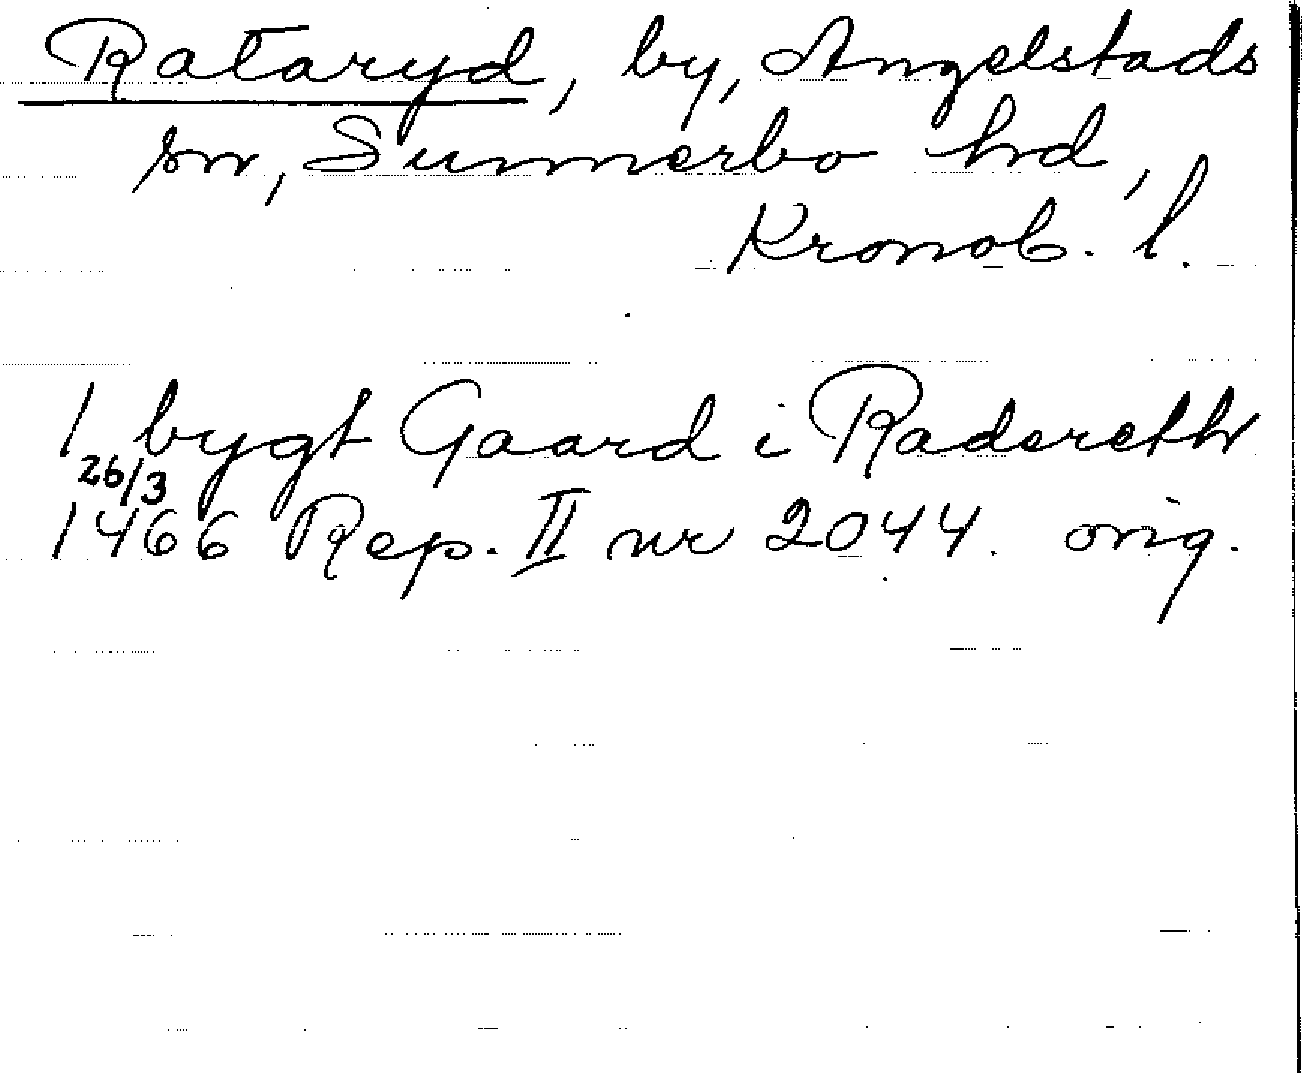 Rataryd, by, Angelstads
sn, Sunnerbo hd,
Kronob. l.
1 bygt Gaard i Radereth
26/3
1466 Rep. II nr 2044. orig.